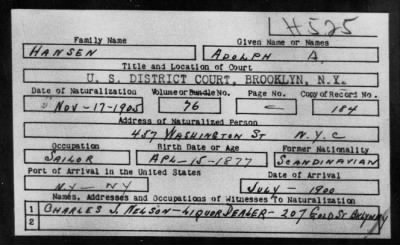 H525
Family Name Given Name or Names
HANSEN ADOLPH A.
Title and Location of Court
U. S. DISTRICT COURT, BROOKLYN, N.Y.
Date of Naturalization Volume or Bundle No. Page No. Copy of Record No.
Nov-17-1905 76 184
Address of Naturalized Person
457 WASHINGTON ST N.Y.C
Occupation Birth Date or Age Former Nationality
SAILOR APL-15-1877 SCANDINAVIAN
Port of Arrival in the United States Date of Arrival
N.Y-NY JULY-1900
Names, Addresses and Occupations of Witnesses To Naturalization
1 CHARLES J. NELSON-LIQUOR DEALER-207 GOLD ST BKLYN NY
2